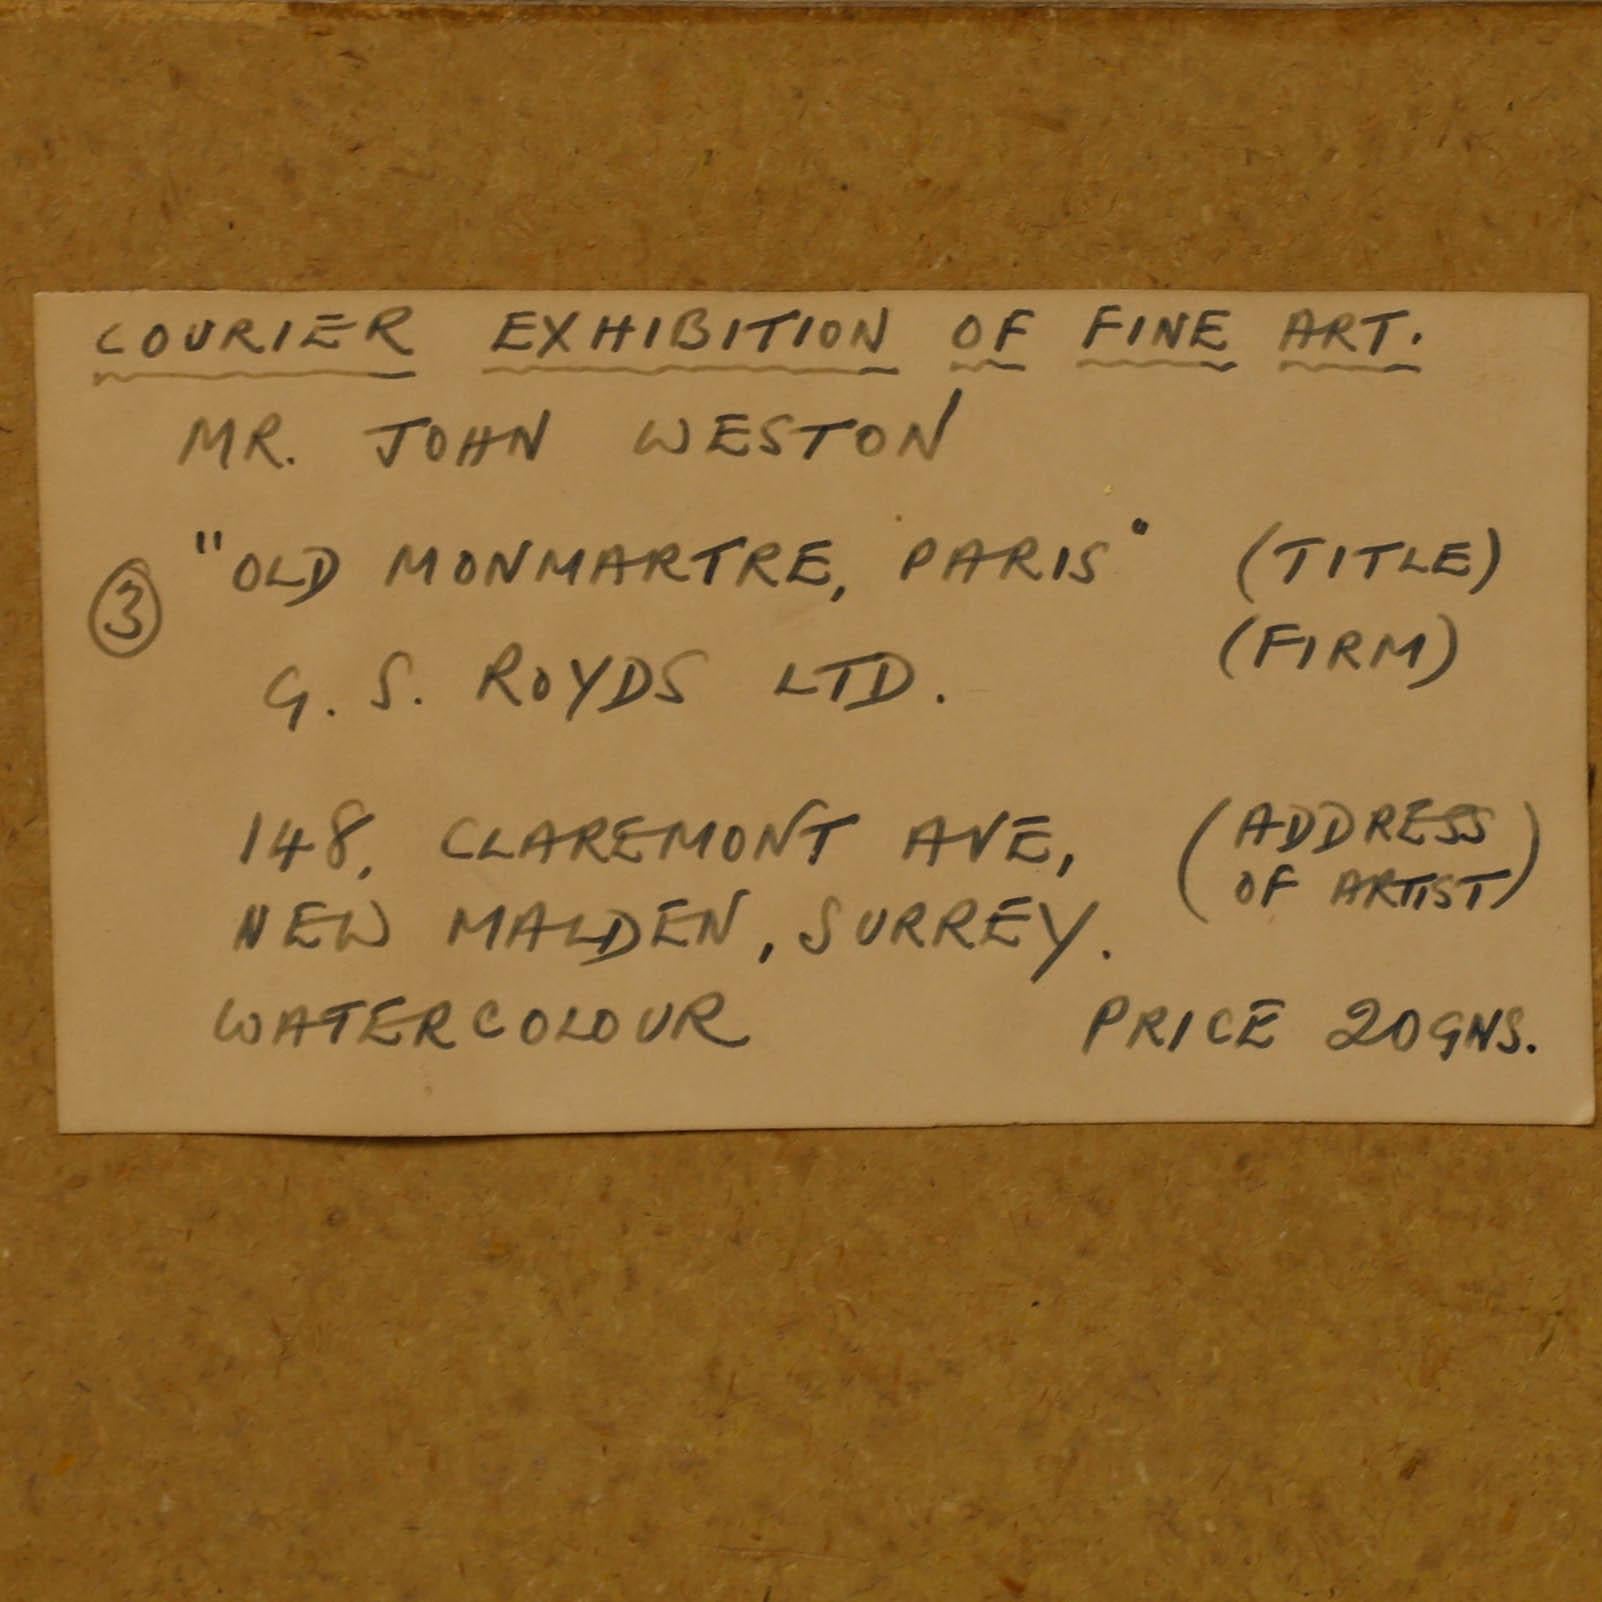 COURIER EXHIBITION OF FINE ART.
MR. JOHN WESTON
"OLD MONMARTRE, PARIS" (TITLE)
3
G. S. ROYDS LTD. (FIRM)
148, CLAREMONT AVE, (ADDRESS
NEW MALDEN, SURREY. OF ARTIST)
WATERCOLOUR PRICE 20GNS.